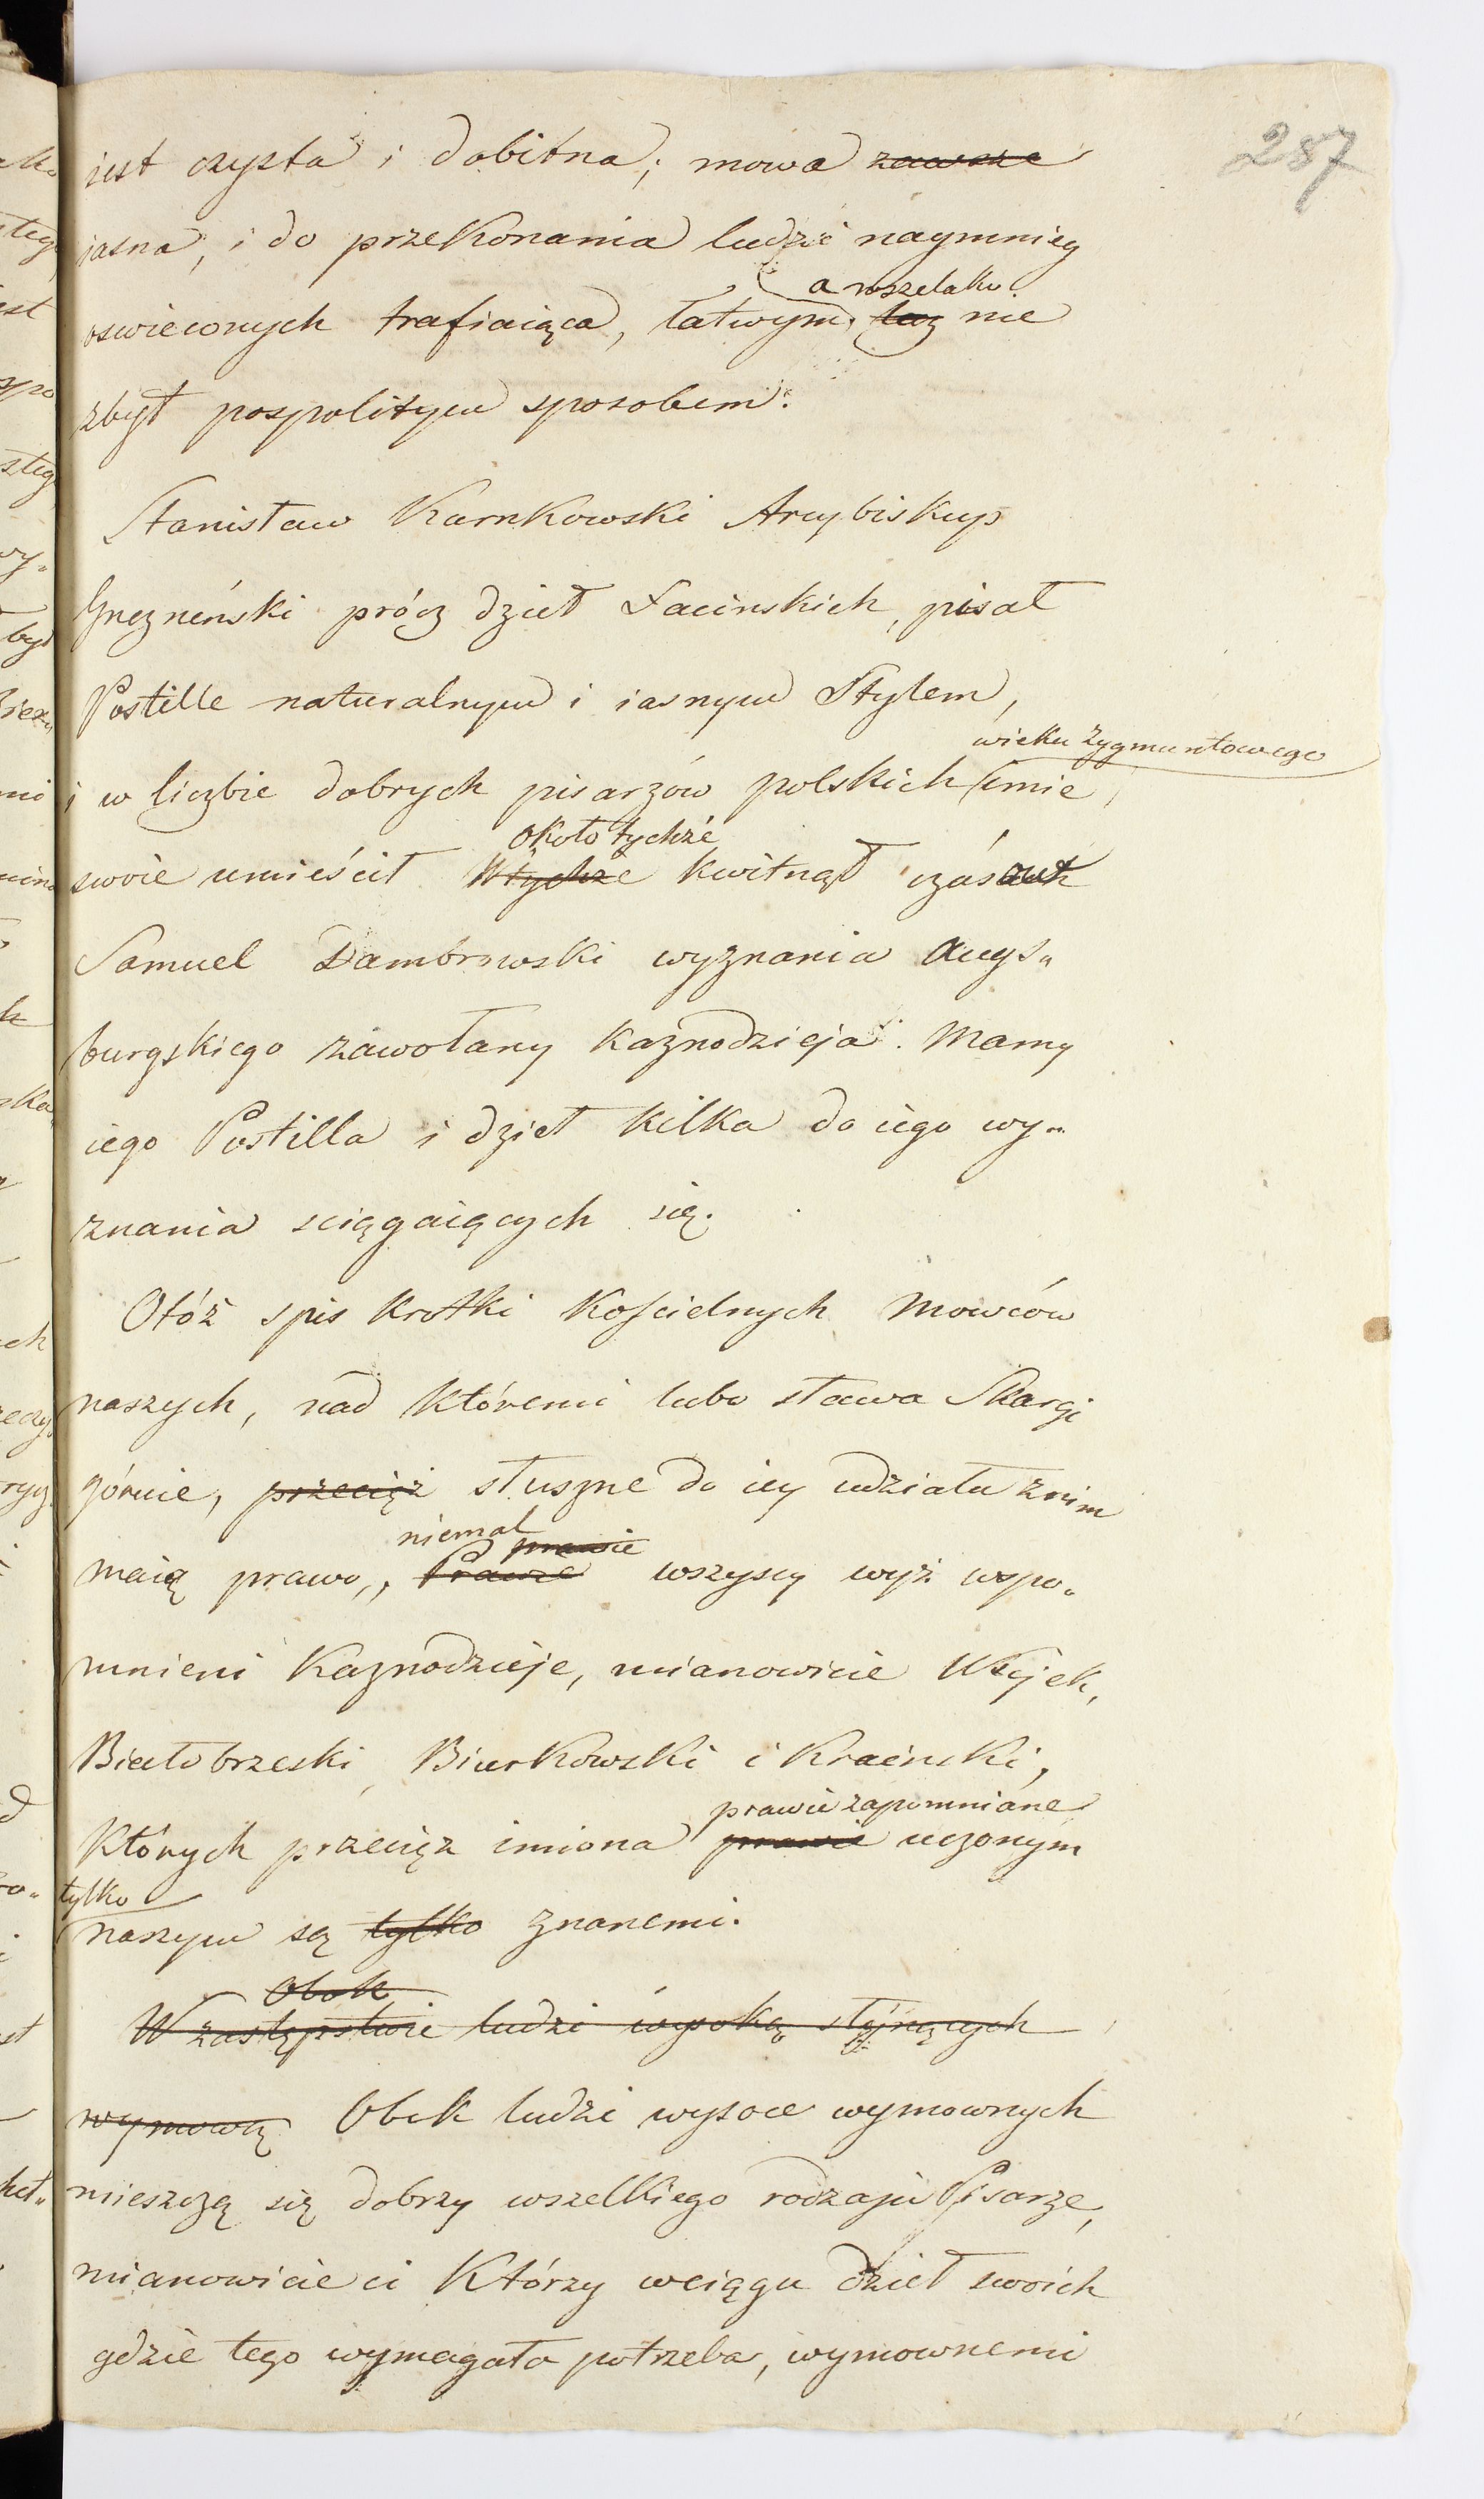 287
jest czysta i dobitna; mowa zawsze
iasna, i do przekonania ludzi naymniey
a wszelako
oswieconych trafiaiąca, łatwym lecz nie
zbyt pospolitym sposobem.
Stanisław Karnkowski Arcybiskup
Gnezneński prócz dzieł Łacinskich, pisał
Postille naturalnym i iasnym Stylem,
wieku Zygmuntowego
i w liczbie dobrych pisarzów polskich imie
około tychże
swoie umieścił Wtychże kwitnął czasów
Samuel Dambrowski wyznania Augs„
burgskiego zawołany kaznodzieja. Mamy
iego Postilla i dzieł kilka do iego wy„
znania sciągaiących się.
Otóż spis krotki kościelnych Mowców
naszych, nad któremi lubo sława Skargi
góruie, przecięż słuszne do iey udziału z nim
niemal prawie
maią prawo, Prawie wszyscy wyż wspo„
mnieni kaznodzieje, mianowicie Wujek,
Białobrzeski, Birkowski i Kraiński,
prawie zapomniane
których przecięż imiona prawie uczonym
tylko
naszym są tylko znanemi.
Obok
W zastępstwie ludzi wysoką słynących
wymową Obok ludzi wysoce wymownych
mieszczą się dobrzy wszelkiego rodzaju Pisarze,
mianowicie ci którzy wciągu dzieł swoich
gdzie tego wymagała potrzeba, wymownemi